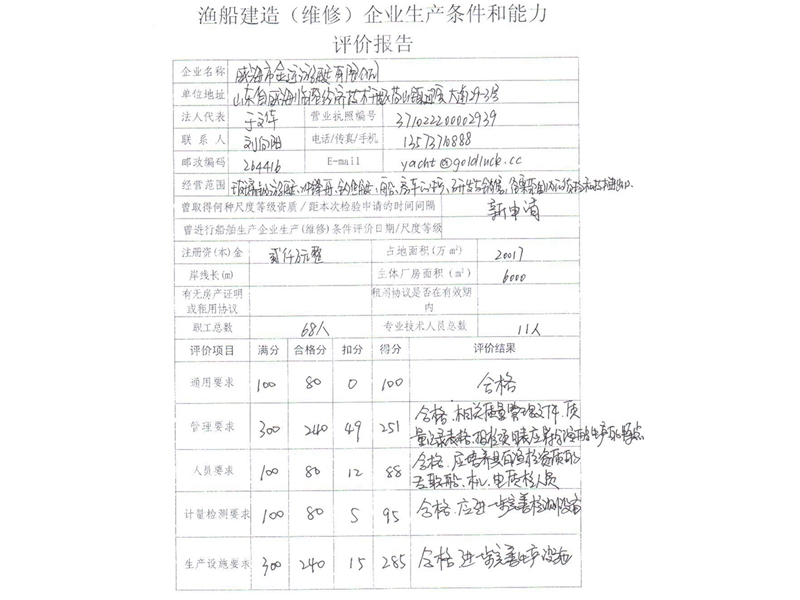 渔船建造（维修）企业生产条件和能力
评价报告
企业名称 威海市金运游艇有限公司
单位地址 山东省威海临港经济技术开发区 大南29-3号
法人代表 于文华 营业执照编号 371022200002939
联系人 刘向阳 电话/传真/手机 13573710888
邮政编码 264416 E-mail yacht@goldluck.cc
经营范围 玻璃钢游艇、冲锋舟、钓鱼艇、
曾取得何种尺度等级资质/距本次检验申请的时间间隔 新申请
曾进行船舶生产企业生产(维修)条件评价日期/尺度等级
注册资(本)金 贰仟万元整 占地面积(万m²) 20017
岸线长(m) 主体厂房面积（m²） 6000
有无房产证明或租用协议 租用协议是否在有效期内
职工总数 68人 专业技术人员总数 11人
评价项目 满分 合格分 扣分 得分 评价结果
通用要求 100 80 0 100 合格
管理要求 300 240 49 251 合格、相关质量管理文件、质
量记录表格、
人员要求 100 80 12 88 合格、应培养具有渔检资质的
船、机、电质检人员
计量检测要求 100 80 5 95 合格、应进一步完善检测设备
生产设施要求 300 240 15 285 合格 进一步完善生产设施